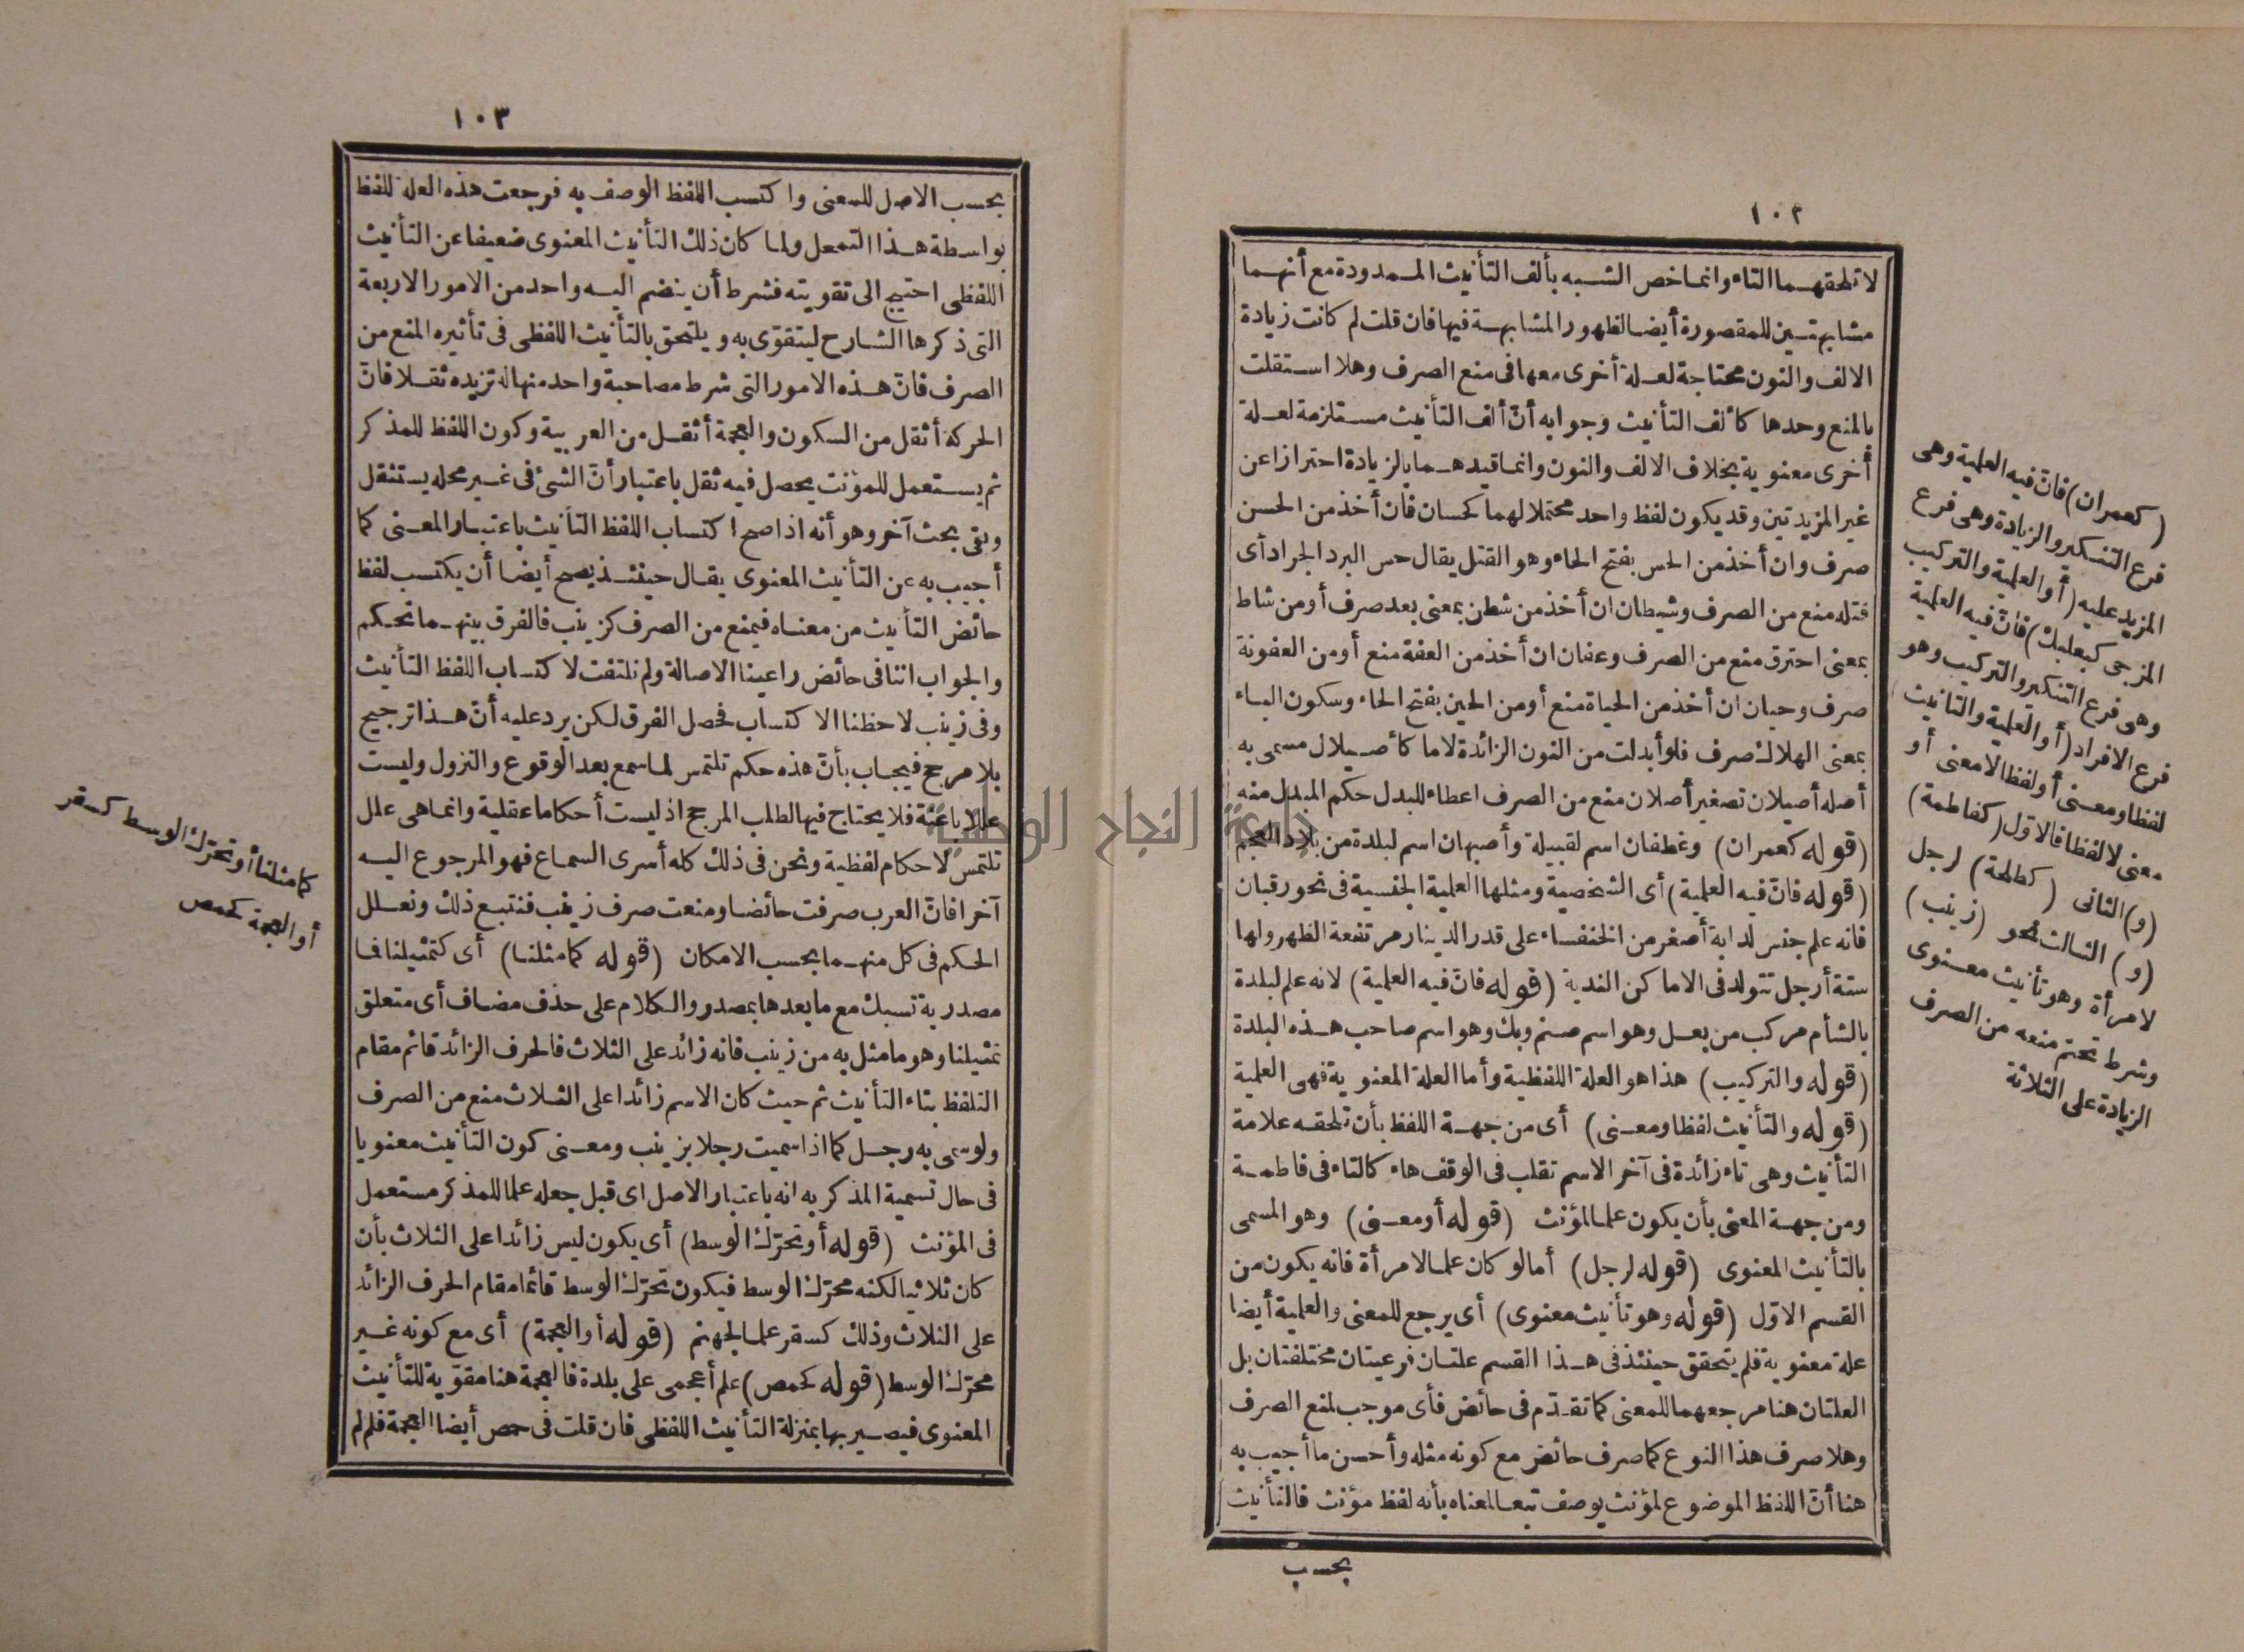 ١٠٢
لا تلحقهما التاء وانما خص الشبه بألف التأنيث الممدودة مع أنهما
مشابهتين للمقصورة أيضا لظهور المشابهة فيها فان قلت لم كانت زيادة
الالف والنون محتاجة لعلة أخرى معها فى منع الصرف وهلا استقلت
بالمنع وحدها كألف التأنيث وجوابه أنّ ألف التأنيث مستلزمة لعلة
أخرى معنوية بخلاف الالف والنون وانما قيدهما بالزيادة احترازا عن
غير المزيدتين وقد يكون لفظ واحد محتملا لهما كحسان فان أخذ من الحسن
صرف وان أخذ من الحس بفتح الحاء وهو القتل يقال حس البرد الجراد أى
قتله منع من الصرف وشيطان ان أخذ من شطن بمعنى بعد صرف أو من شاط
بمعنى احترق منع من الصرف وعفان ان أخذ من العفة منع أو من العفونة
صرف وحيان ان أخذ من الحياة منع أو من الحين بفتح الحاء وسكون الياء
بمعنى الهلاك صرف فلو أبدلت من النون الزائدة لاما كأصيلال مسمى به
أصله أصيلان تصغير أصلان منع من الصرف اعطاء للبدل حكم المبدل منه
(قوله كعمران) وغطفان اسم لقبيلة وأصبهان اسم لبلدة من بلاد العجم
(قوله فانّ فيه العلمية) أى الشخصية ومثلها العلمية الجنسية فى نحو رقبان
فانه علم جنس لدابة أصغر من الخنفساء على قدر الدينار مرتفعة الظهر ولها
ستة أرجل تتولد فى الاماكن الندية (قوله فانّ فيه العلمية) لانه علم لبلدة
بالشأم مركب من بعل وهو اسم صنم وبك وهو اسم صاحب هذه البلدة
(قوله والتركيب) هذا هو العلة اللفظية وأما العلة المعنوية فهى العلمية
(قوله والتأنيث لفظا ومعنى) أى من جهة اللفظ بأن تلحقه علامة
التأنيث وهى تاء زائدة فى آخر الاسم تقلب فى الوقف هاء كالتاء فى فاطمة
ومن جهة المعنى بأن يكون علما لمؤنث (قوله أو معنى) وهو المسمى
بالتأنيث المعنوى (قوله لرجل) أما لو كان علما لامرأة فانه يكون من
القسم الاوّل (قوله وهو تأنيث معنوى) أى يرجع للمعنى والعلمية أيضا
علة معنوية فلم يتحقق حينئذ فى هذا القسم علتان فرعيتان مختلفتان بل
العلتان هنا مرجعهما للمعنى كما تقدّم فى حائض فأى موجب لمنع الصرف
وهلا صرف هذا النوع كما صرف حائض مع كونه مثله وأحسن ما أجيب به
هنا أنّ اللفظ الموضوع لمؤنث يوصف تبعا لمعناه بأنه لفظ مؤنث فالتأنيث
بحسب
(كعمران) فانّ فيه العلمية وهى
فرع التنكير والزيادة وهى فرع
المزيد عليه (أو العلمية والتركيب
المزجى كبعلبك) فانّ فيه العلمية
وهى فرع التنكير والتركيب وهو
فرع الافراد (أو العلمية والتأنيث
لفظا ومعنى أو لفظا لا معنى أو
معنى لا لفظا فالاوّل (كفاطمة)
(و) الثانى (كطلحة) لرجل
(و) الثالث نحو (زينب)
لامرأة وهو تأنيث معنوى
وشرط تحتم منعه من الصرف
الزيادة على الثلاثة
١٠٣
بحسب الاصل للمعنى واكتسب اللفظ الوصف به فرجعت هذه العلة للفظ
بواسطة هذا التمحل ولما كان ذلك التأنيث المعنوى ضعيفا عن التأنيث
اللفظى احتيج الى تقويته فشرط أن ينضم اليه واحد من الامور الاربعة
التى ذكرها الشارح ليتقوّى به ويلتحق بالتأنيث اللفظى فى تأثيره المنع من
الصرف فانّ هذه الامور التى شرط مصاحبة واحد منها له تزيده ثقلا فانّ
الحركة أثقل من السكون والعجمة أثقل من العربية وكون اللفظ للمذكر
ثم يستعمل للمؤنث يحصل فيه ثقل باعتبار أنّ الشئ فى غير محله يستثقل
وبقى بحث آخر وهو أنه اذا صح اكتساب اللفظ التأنيث باعتبار المعنى كما
أجيب به عن التأنيث المعنوى يقال حينئذ يصح أيضا أن يكتسب لفظ
حائض التأنيث من معناه فيمنع من الصرف كزينب فالفرق بينهما تحكم
والجواب اننا فى حائض راعينا الاصالة ولم نلتفت لاكتساب اللفظ التأنيث
وفى زينب لاحظنا الاكتساب فحصل الفرق لكن يرد عليه أنّ هذا ترجيح
بلا مرجح فيجاب بأنّ هذه حكم تلتمس لما سمع بعد الوقوع والنزول وليست
عللا باعثة فلا يحتاج فيها لطلب المرجح اذ ليست أحكاما عقلية وانما هى علل
تلتمس لاحكام لفظية ونحن فى ذلك كله أسرى السماع فهو المرجوع اليه
آخرا فانّ العرب صرفت حائضا ومنعت صرف زينب فنتبع ذلك ونعلل
الحكم فى كل منهما بحسب الامكان (قوله كما مثلنا) أى كتمثيلنا فما
مصدرية تسبك مع ما بعدها بمصدر والكلام على حذف مضاف أى متعلق
تمثيلنا وهو ما مثل به من زينب فانه زائد على الثلاث فالحرف الزائد قائم مقام
التلفظ بتاء التأنيث ثم حيث كان الاسم زائدا على الثلاث منع من الصرف
ولو سمى به رجل كما اذا سميت رجلا بزينب ومعنى كون التأنيث معنويا
فى حال تسمية المذكر به انه باعتبار الاصل اى قبل جعله علما للمذكر مستعمل
فى المؤنث (قوله أو تحرّك الوسط) أى يكون ليس زائدا على الثلاث بأن
كان ثلاثيا لكنه محرّك الوسط فيكون تحرّك الوسط قائما مقام الحرف الزائد
على الثلاث وذلك كسقر علما لجهنم (قوله أو العجمة) أى مع كونه غير
محرّك الوسط (قوله كحمص) علم أعجمى على بلدة فالعجمة هنا مقوّية للتأنيث
المعنوى فيصير بها بمنزلة التأنيث اللفظى فان قلت فى حمص أيضا العجمة فلم لم
كما مثلنا أو تحرّك الوسط كسقر
أو العجمة كحمص
جامعة النجاح الوطنية